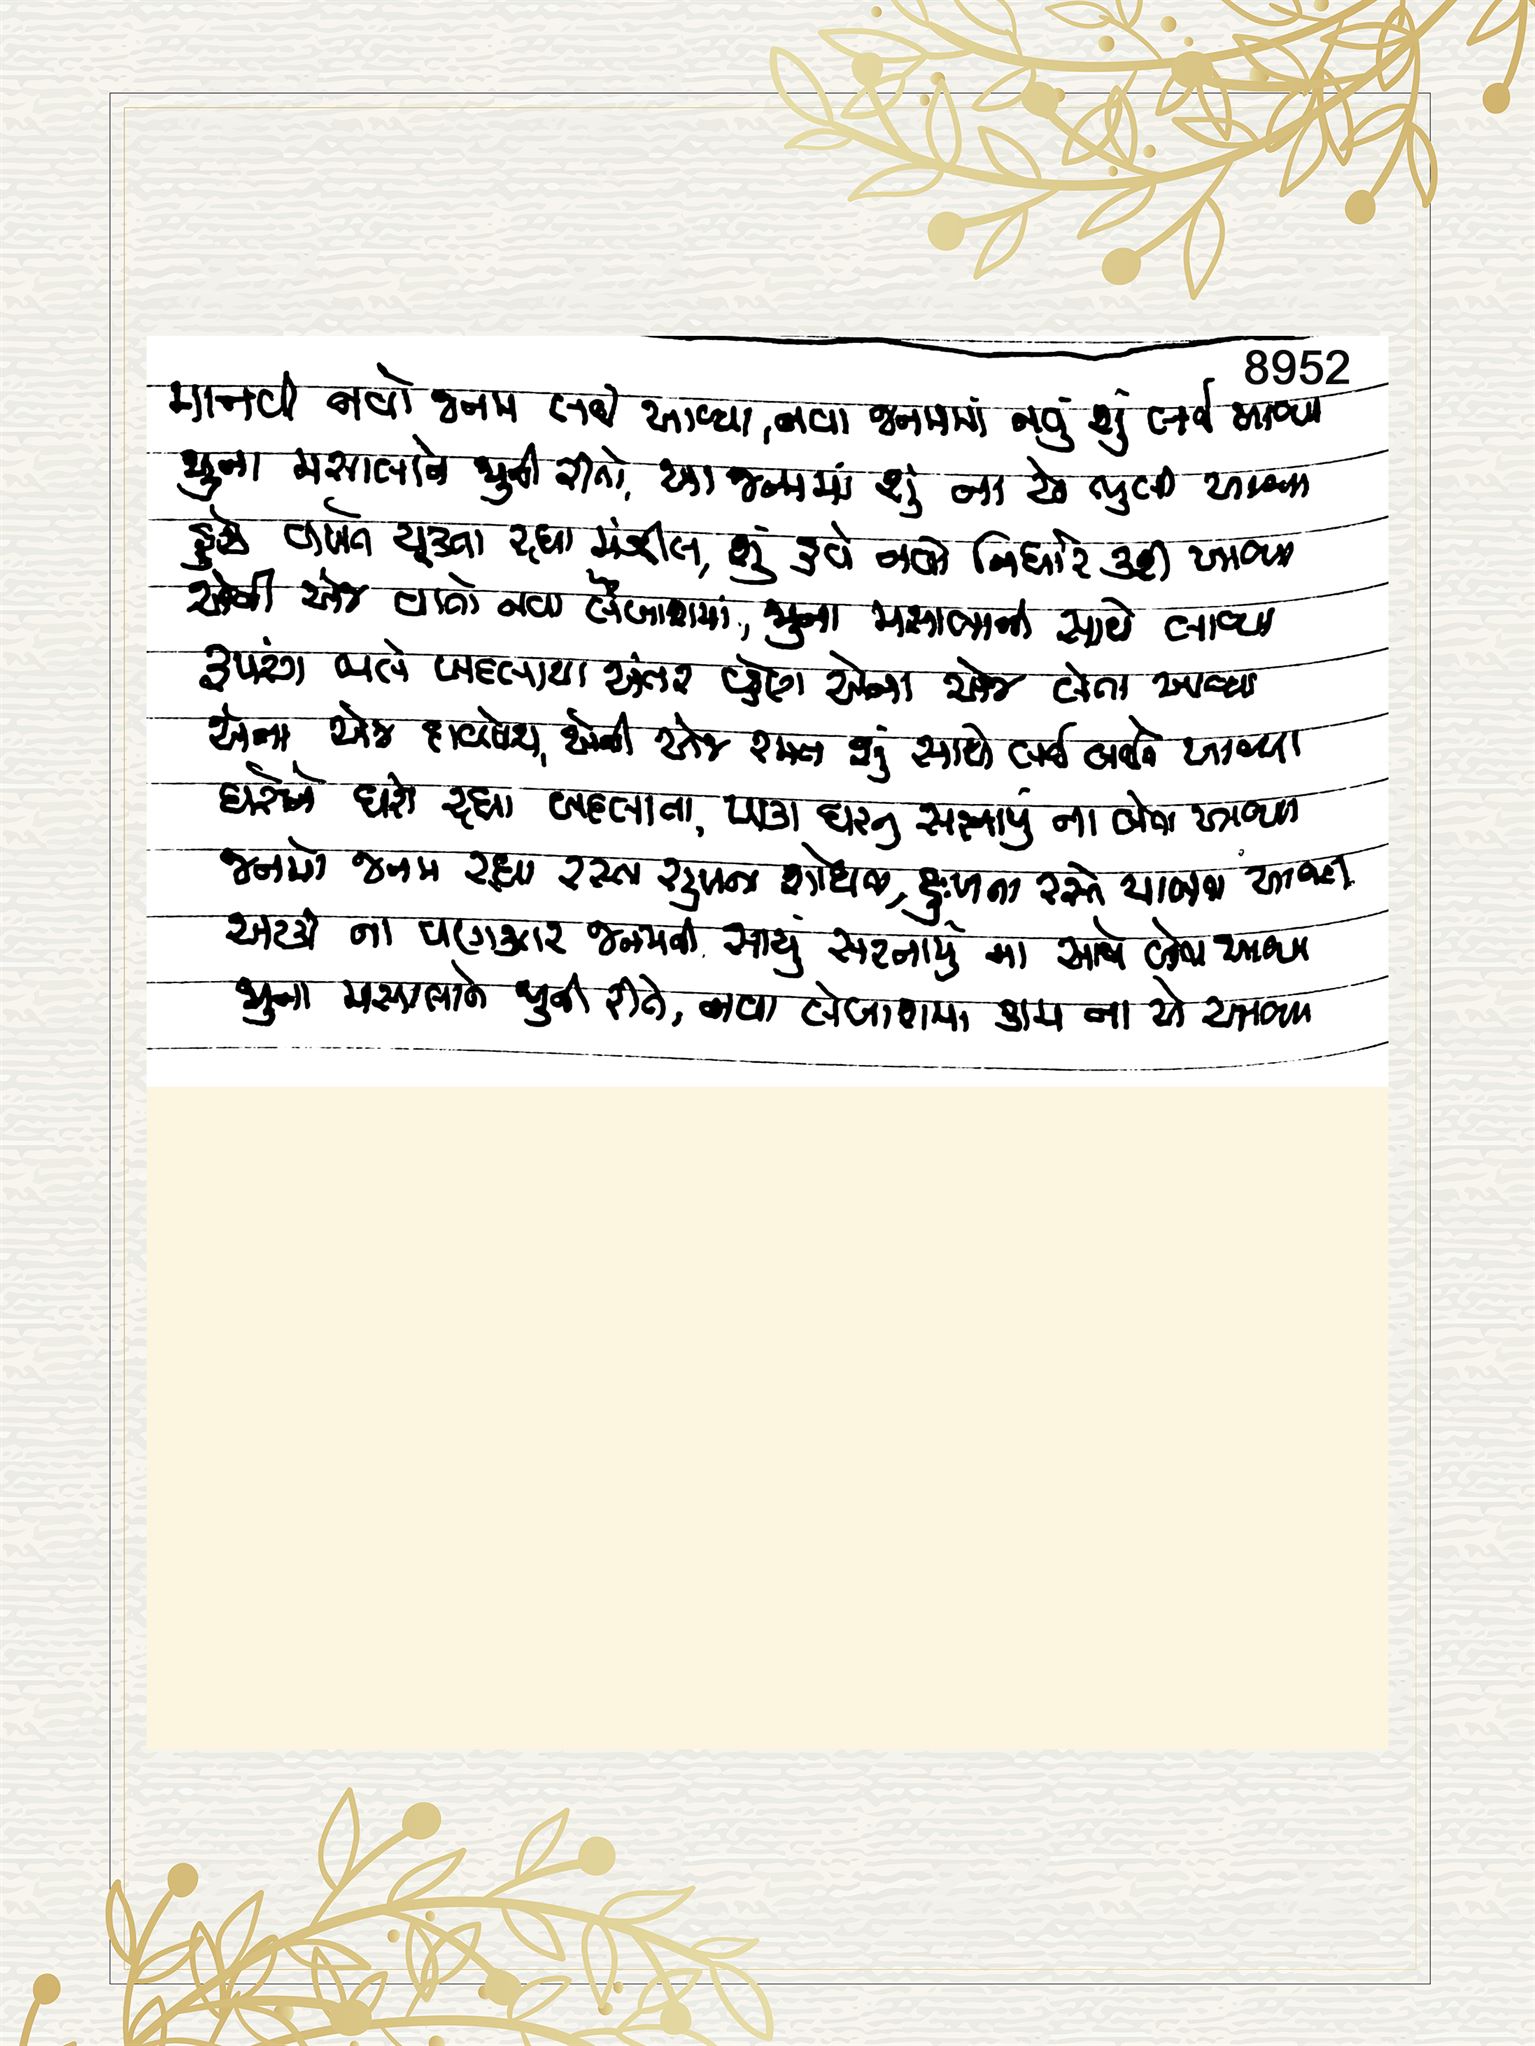 8952
માનવી નવો જનમ લઈને આવ્યા, નવા જનમમાં નવું શું લઈ આવ્યા
જુના મસાલાને જુની રીતો, આ જનમમાં શું ના એ ભુલી આવ્યા
વખતે ચૂકતા રહ્યા મંઝીલ, શું હવે નવો નિર્ધાર કરી આવ્યા
એની એજ વાતો નવા લેબાશમાં, જુના મસાલાની સાથે લાવ્યા
રૂપરંગ ભલે બદલાયા અંતર એના એજ લેતા આવ્યા
એના એજ દાવપેચ, એની એજ રમત શું સાથે લઈ લઈને આવ્યા
ઘરેને ઘરો રહ્યા બદલાતા, પાકા ઘરનું સરનામું ના લેવા આવ્યા
જનમો જનમ રહ્યા રસ્તા સુખના શોધવા, દુઃખના રસ્તે ચાલવા આવ્યા
અટકી ના વણઝાર જનમની સાચું સરનામું ના સાથે લેવા આવ્યા
જુના મસાલાને જુની રીતે, નવા લેબાશમાં કામ ના એ આવ્યા